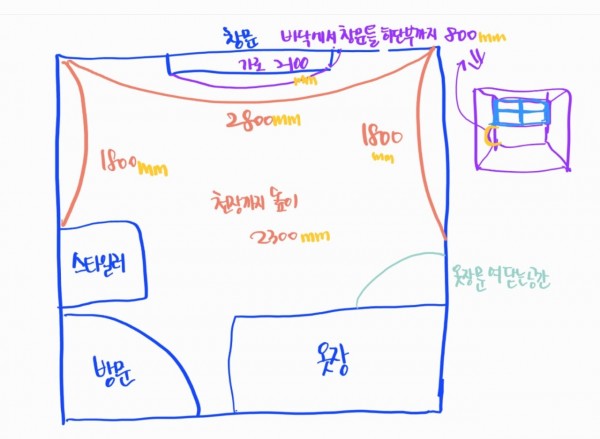 창문 바닥에서 창문틀 하단부까지 800mm
가로 2100
mm
2800mm
1800mm
1800
mm
천장까지 높이
2300mm
스타일러
옷장문 여닫는공간
방문
옷장